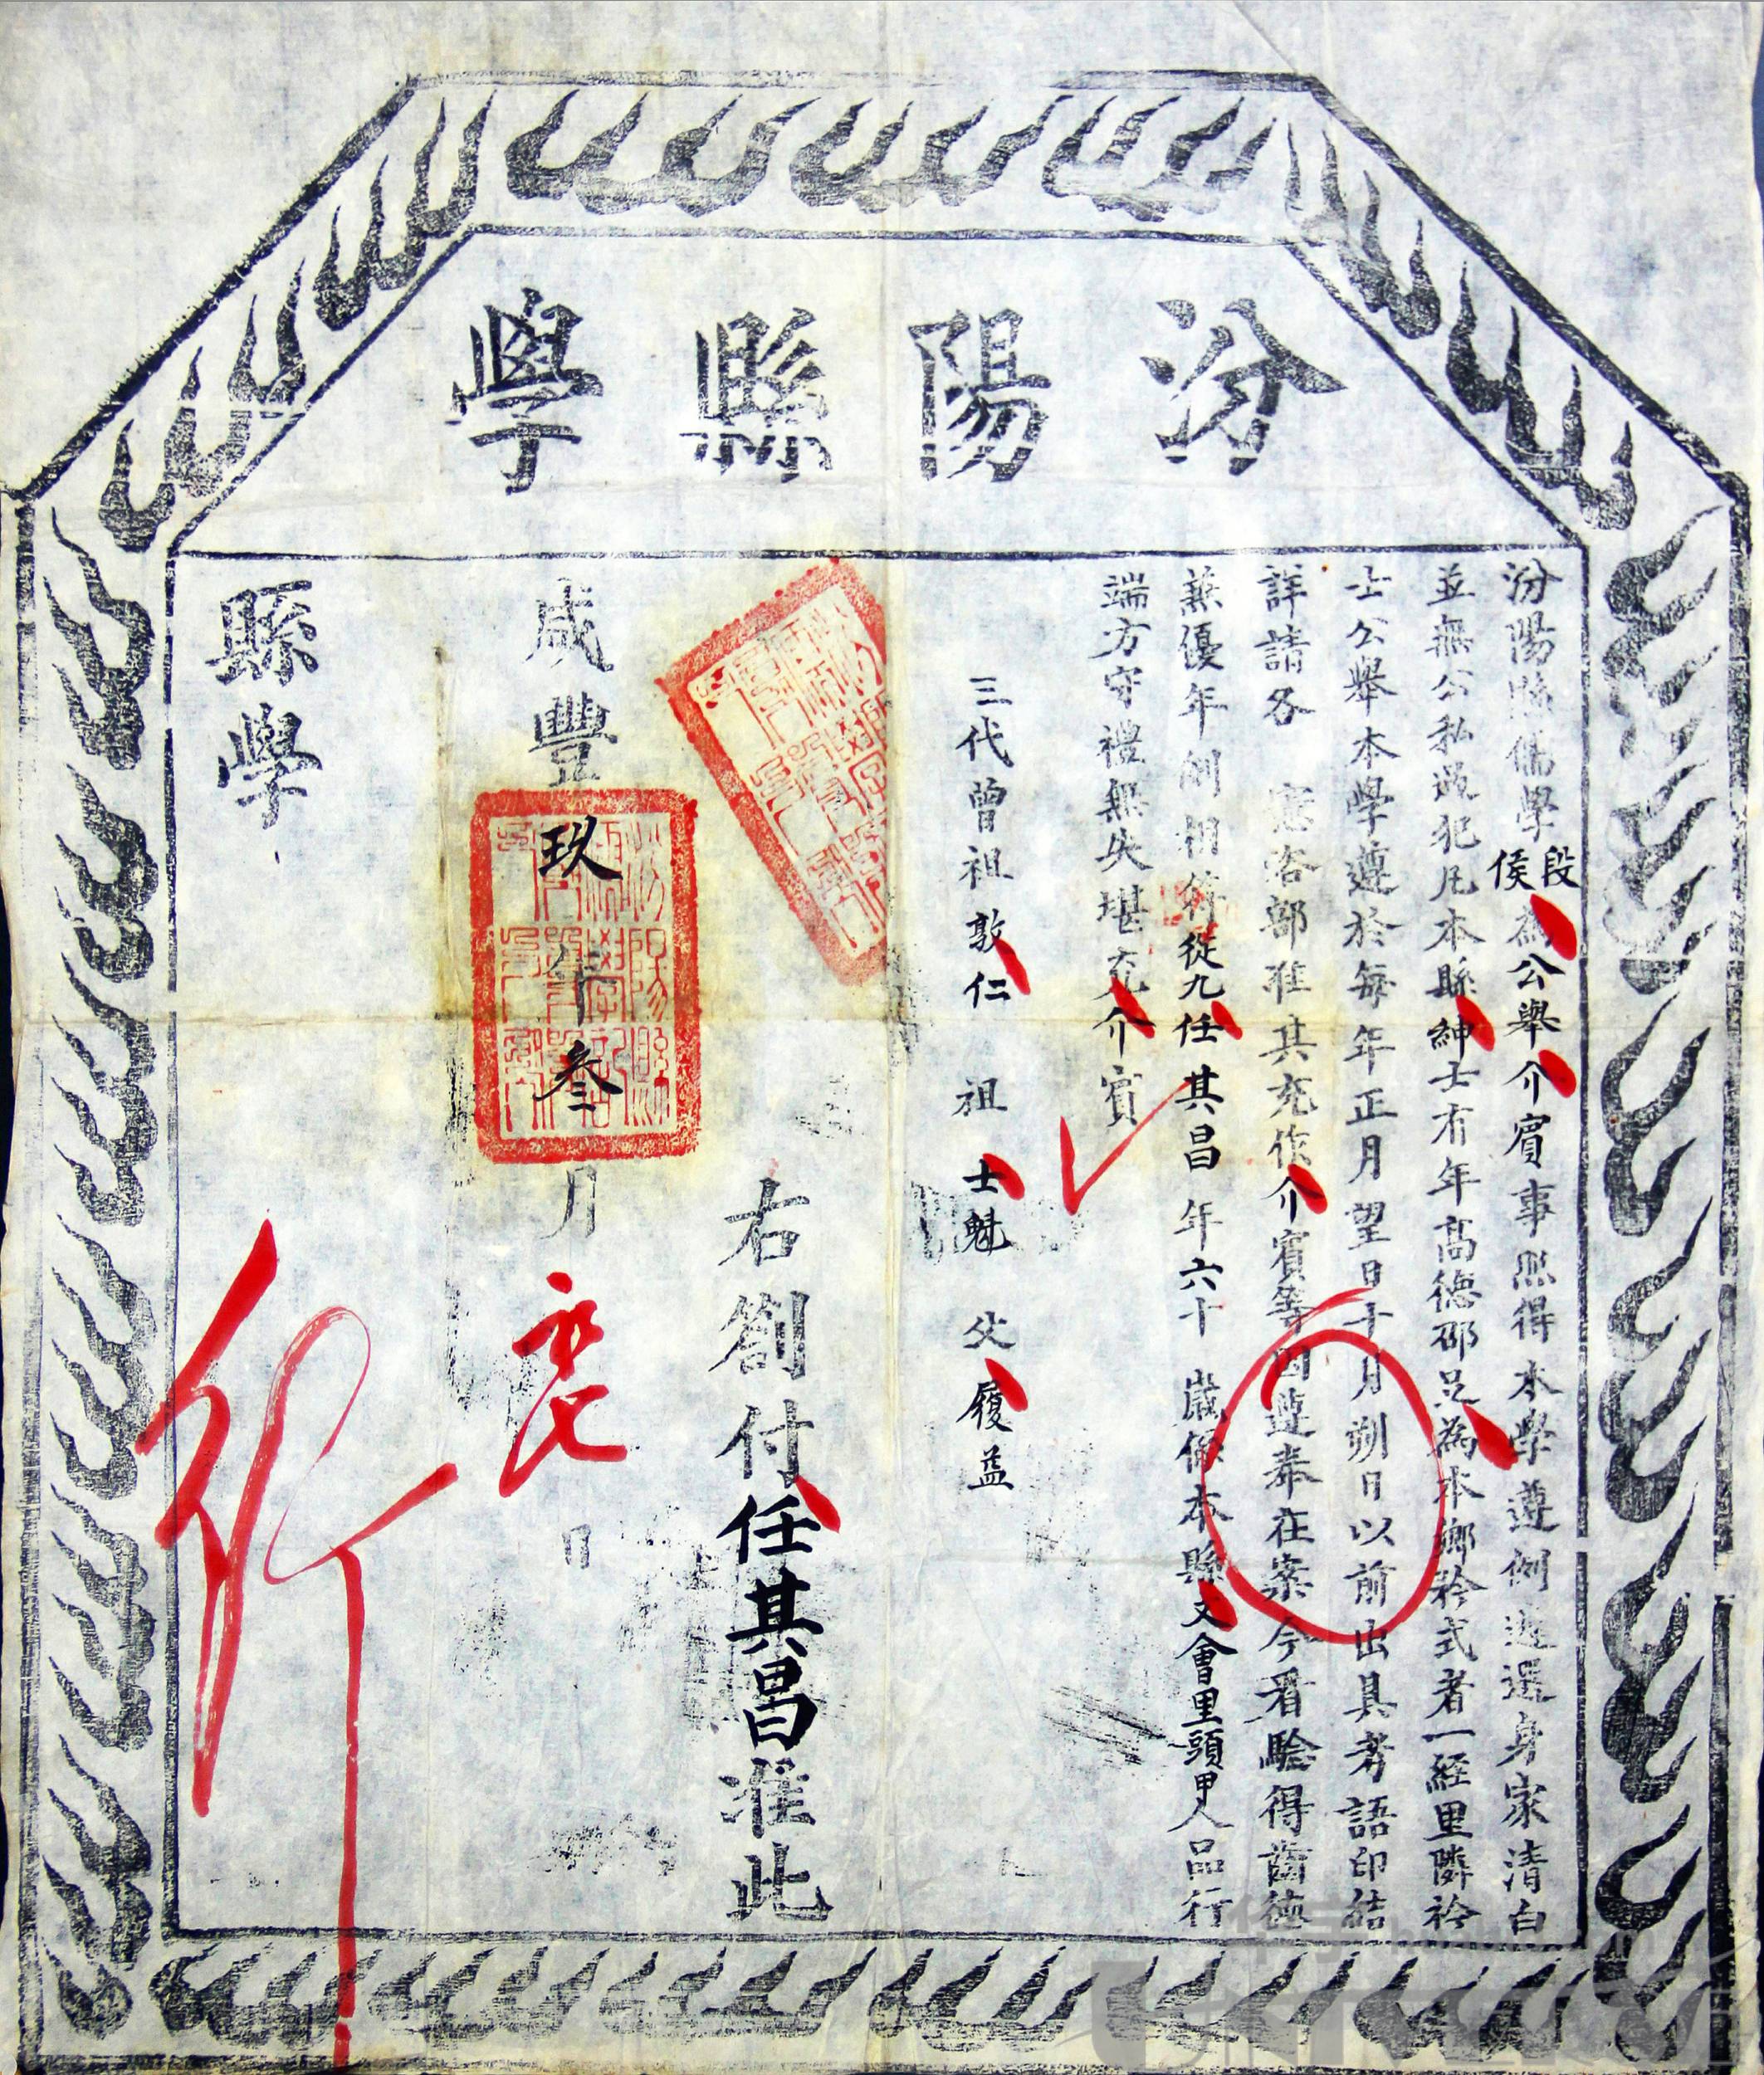 汾陽縣學
汾陽縣儒學段侯為公舉介賓事照得本學遵例遴選身家清白
並無公私過犯凡本縣紳士有年高德邵足為本鄉矜式者一經里隣衿
士公舉本學遵於每年正月望日十月朔日以前出具考語印結
詳請各憲咨部准其充作介賓等因遵奉在案今看驗得齒德
兼優年例相符從九任其昌年六十歲係本縣文會里頭甲人品行
端方守禮無失堪充介賓
三代曾祖敦仁 祖士魁 父履益
右劄付任其昌准此
咸豐玖年叁月 日
縣學
行